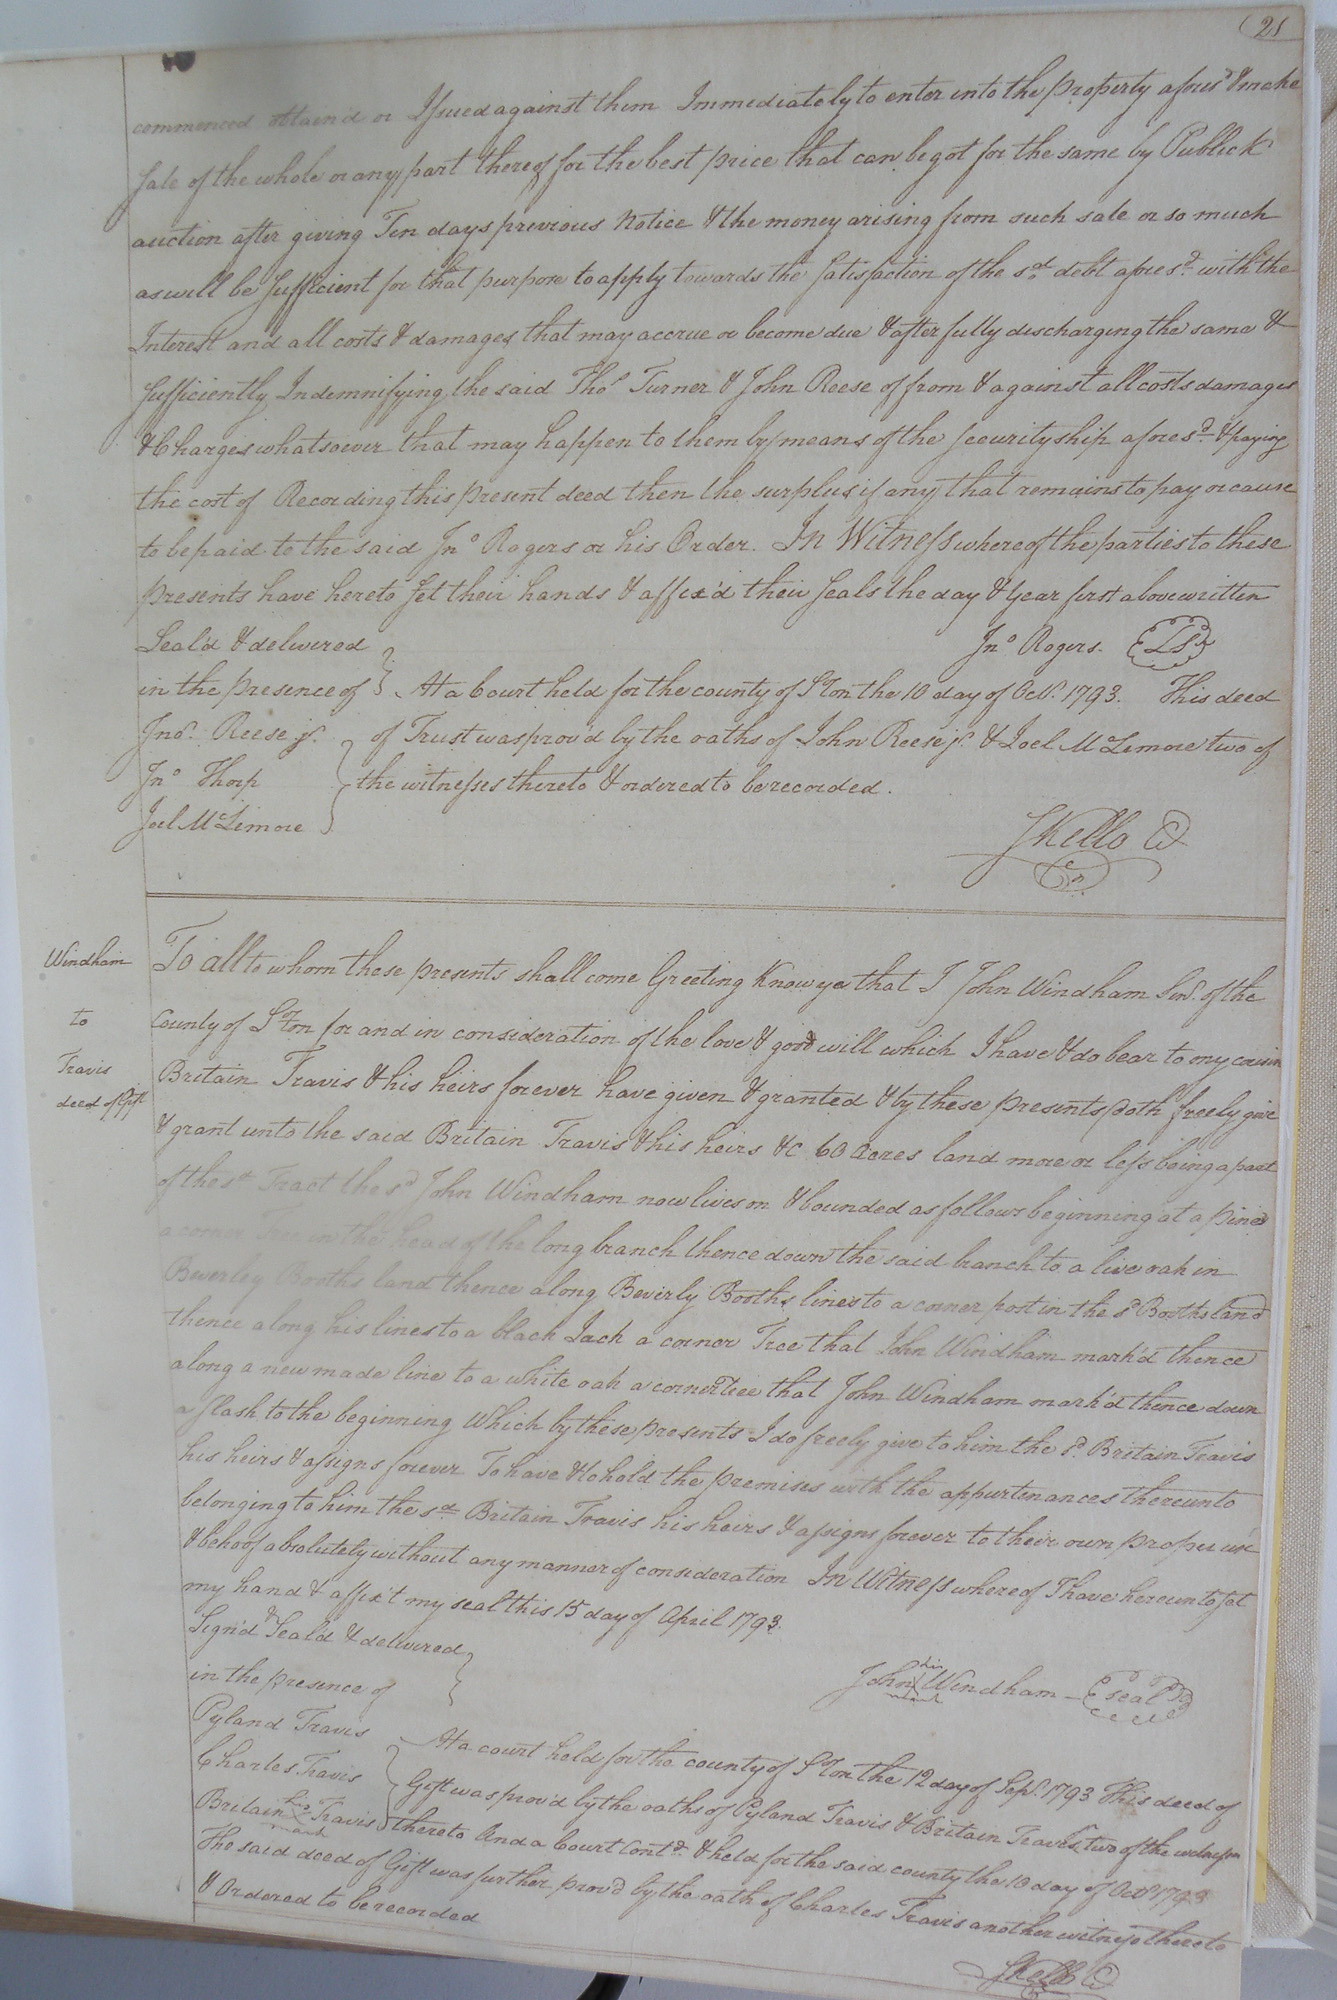 (21
commenced obtaind or Issued against them Immediately to enter into the property afores^d & make
Sale of the whole or any part thereof for the best price that can be got for the same by Publick
auction after giving Ten days previous Notice & the money arising from such sale or so much
as will be Sufficient for that purpose to apply towards the Satisfaction of the s^d debt afores^d with the
Interest and all costs & damages that may accrue or become due & after fully discharging the same &
Sufficiently Indemnifying the said Tho^s Turner & John Reese of from & against all costs damages
& Charges whatsoever that may happen to them by means of the Securityship afores^d & paying
the cost of Recording this present deed then the surplus if any that remains to pay or cause
to be paid to the said Jn^o Rogers or his Order. In Witness whereof the parties to these
presents have hereto Set their hands & affix'd their Seals the day & year first above written
Seal'd & delivered
Jn^o Rogers. LS
in the presence of
At a Court held for the county of S^oton the 10 day of Oct^r. 1793. This deed
Jn^o. Reese j^r.
of Trust was prov'd by the oaths of John Reese j^r. & Joel M^cLemore two of
Jn^o Thorp
the witnesses thereto & ordered to be recorded.
Joel M^cLemore
SKello C
Windham
to
Travis
deed of Gift
To all to whom these presents shall come Greeting Know ye that I John Windham Sen^r. of the
County of S^oton for and in consideration of the love & good will which I have & do bear to my cousin
Britain Travis & his heirs forever have given & granted & by these presents doth freely give
& grant unto the said Britain Travis & his heirs &c 60 Acres land more or less being a part
of the Tract the s^d John Windham now lives on & bounded as follows beginning at a pine
a corner Tree in the head of the long branch thence down the said branch to a live oak in
Beverley Booths land thence along Beverly Booths lines to a corner post in the s^d Booths land
thence along his lines to a black Jack a corner Tree that John Windham mark'd thence
along a new made line to a white oak a corner Tree that John Windham mark'd thence down
a slash to the beginning Which by these presents I do freely give to him the s^d. Britain Travis
his heirs & assigns forever To have & to hold the premises with the appurtinances thereunto
belonging to him the s^d Britain Travis his heirs & assigns forever to their own proper use
& behoof absolutely without any manner of consideration In Witness whereof I have hereunto set
my hand & affix't my seal this 15 day of April 1793.
Sign'd Seal'd & delivered
in the presence of
John his mark Windham seal
Pyland Travis
At a court held for the county of S^oton the 12 day of Sep^r. 1793 This deed of
Charles Travis
Gift was prov'd by the oaths of Pyland Travis & Britain Travis two of the witnesses
Britain his mark Travis
thereto And a Court Cont^d. & held for the said county the 10 day of Oct^r 1793
The said deed of Gift was further prov'd by the oath of Charles Travis another witness thereto
& Ordered to be recorded
SKello C